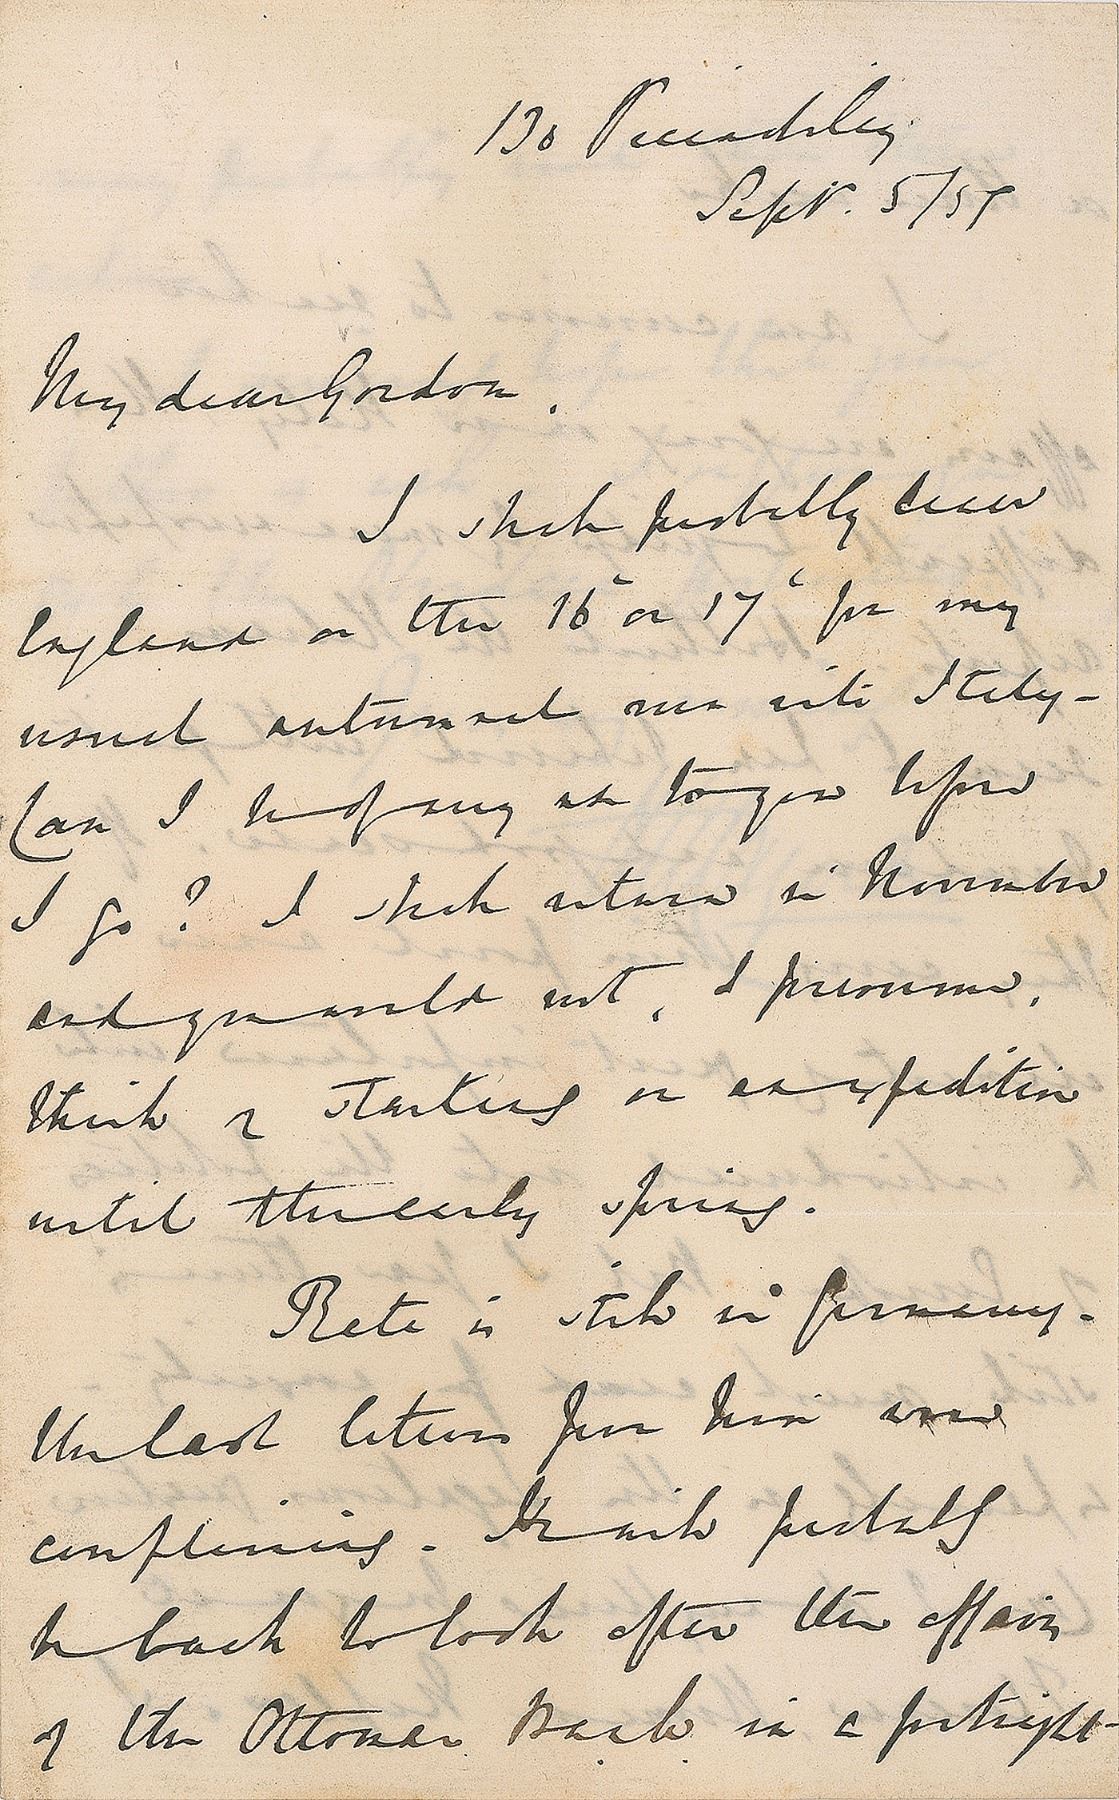 130 Piccadilly
Sept. 5/57
My dear Gordon,
I shall probably leave
England on the 16 or 17 for my
usual autumnal run into Italy -
Can I be of any use to you before
I go? I shall return in November
and you would not, I presume,
think of starting on an expedition
until the early spring.
is still in Germany -
The last letters from him were
complaining. He will probably
be back to look after the affairs
of the Ottoman Bank in a fortnight -